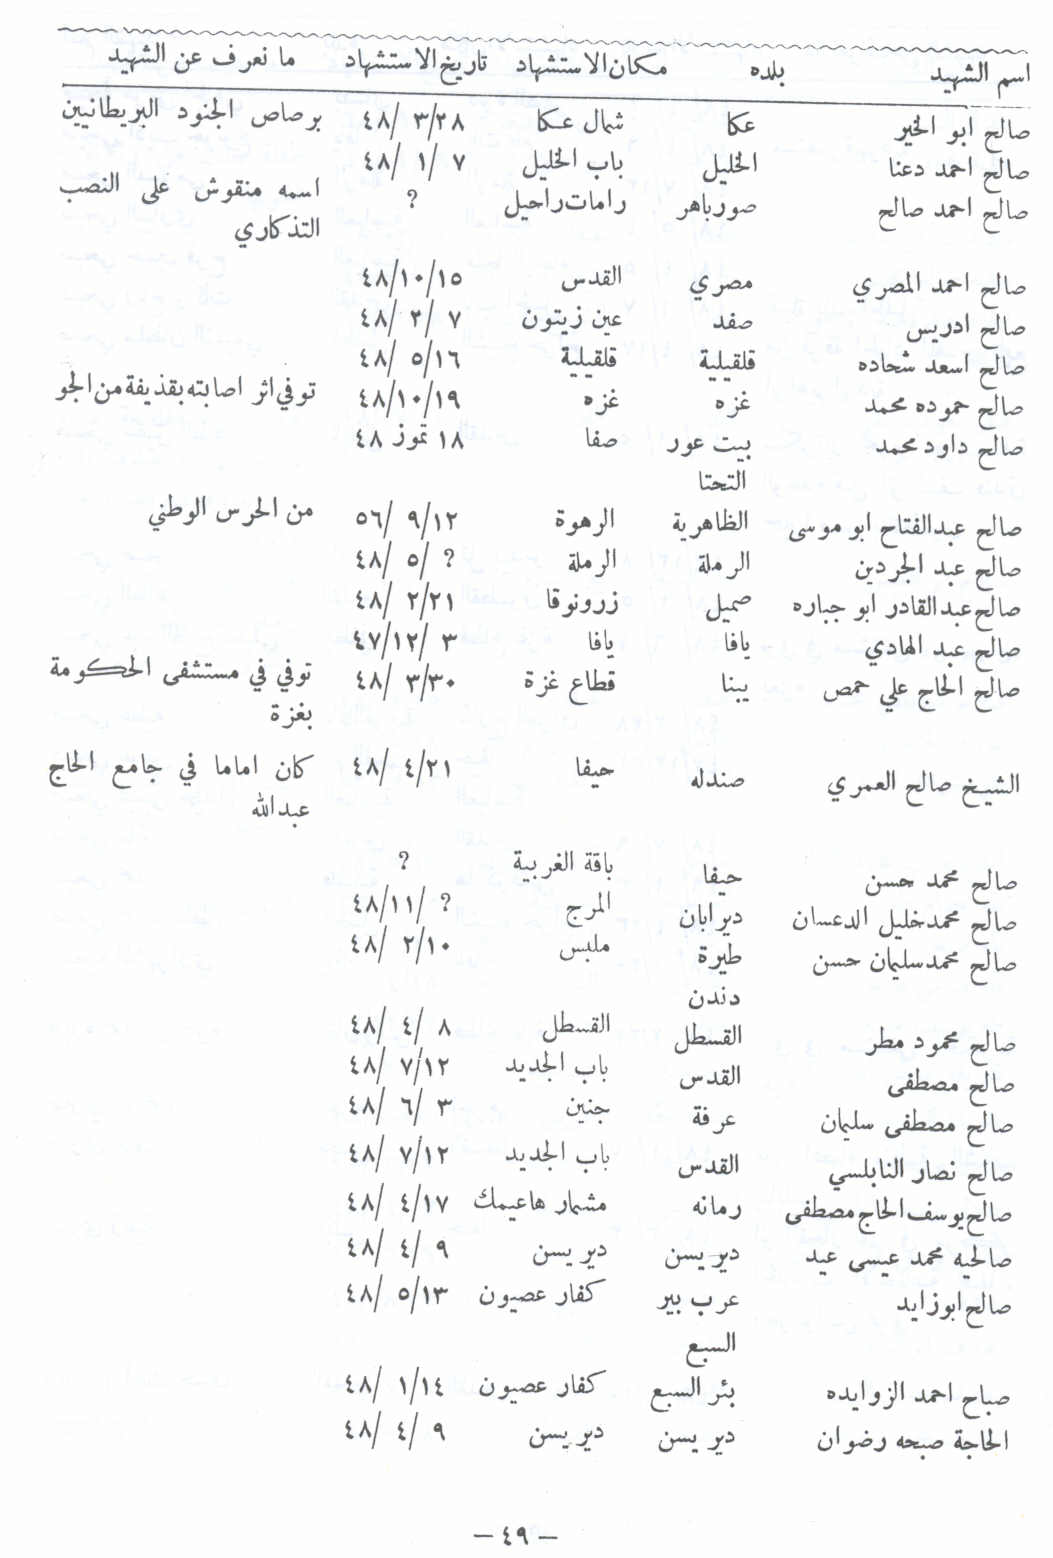 اسم الشهيد بلده مكان الاستشهاد تاريخ الاستشهاد ما نعرف عن الشهيد
صالح ابو الخير عكا شمال عكا ٢٨/٣ /٤٨ برصاص الجنود البريطانيين
صالح احمد دعنا الخليل باب الخليل ٧ /١ /٤٨
صالح احمد صالح صورباهر رامات راحيل ? اسمه منقوش على النصب
التذكاري
صالح احمد المصري مصري القدس ١٥/١٠/٤٨
صالح ادريس صفد عين زيتون ٧ /٢ /٤٨
صالح اسعد شحاده قلقيلية قلقيلية ١٦/٥ /٤٨
صالح حموده محمد غزه غزه ١٩/١٠/٤٨ توفي اثر اصابته بقذيفة من الجو
صالح داود محمد بيت عور صفا ١٨ تموز ٤٨
التحتا
صالح عبدالفتاح ابو موسى الظاهرية الرهوة ١٢/٩ /٥٦ من الحرس الوطني
صالح عبد الجردين الرملة الرملة ? /٥ /٤٨
صالح عبدالقادر ابو جباره صميل زرونوقا ٢١/٢ /٤٨
صالح عبد الهادي يافا يافا ٣ /١٢/٤٧
صالح الحاج علي حمص يبنا قطاع غزة ٣٠/٣ /٤٨ توفي في مستشفى الحكومة
بغزة
الشيخ صالح العمري صندله حيفا ٢١/٤ /٤٨ كان اماما في جامع الحاج
عبدالله
صالح محمد حسن حيفا باقة الغربية ?
صالح محمدخليل الدعسان ديرابان المرج ? /١١/٤٨
صالح محمدسليمان حسن طيرة ملبس ١٠/٢ /٤٨
دندن
صالح محمود مطر القسطل القسطل ٨ /٤ /٤٨
صالح مصطفى القدس باب الجديد ١٢/٧ /٤٨
صالح مصطفى سليمان عرفة جنين ٣ /٦ /٤٨
صالح نصار النابلسي القدس باب الجديد ١٢/٧ /٤٨
صالح يوسف الحاج مصطفى رمانه مشمار هاعيمك ١٧/٤ /٤٨
صالحيه محمد عيسى عيد دير يسن دير يسن ٩ /٤ /٤٨
صالح ابوزايد عرب بير كفار عصيون ١٣/٥ /٤٨
السبع
صباح احمد الزوايده بئر السبع كفار عصيون ١٤/١ /٤٨
الحاجة صبحه رضوان دير يسن دير يسن ٩ /٤ /٤٨
— ٤٩ —